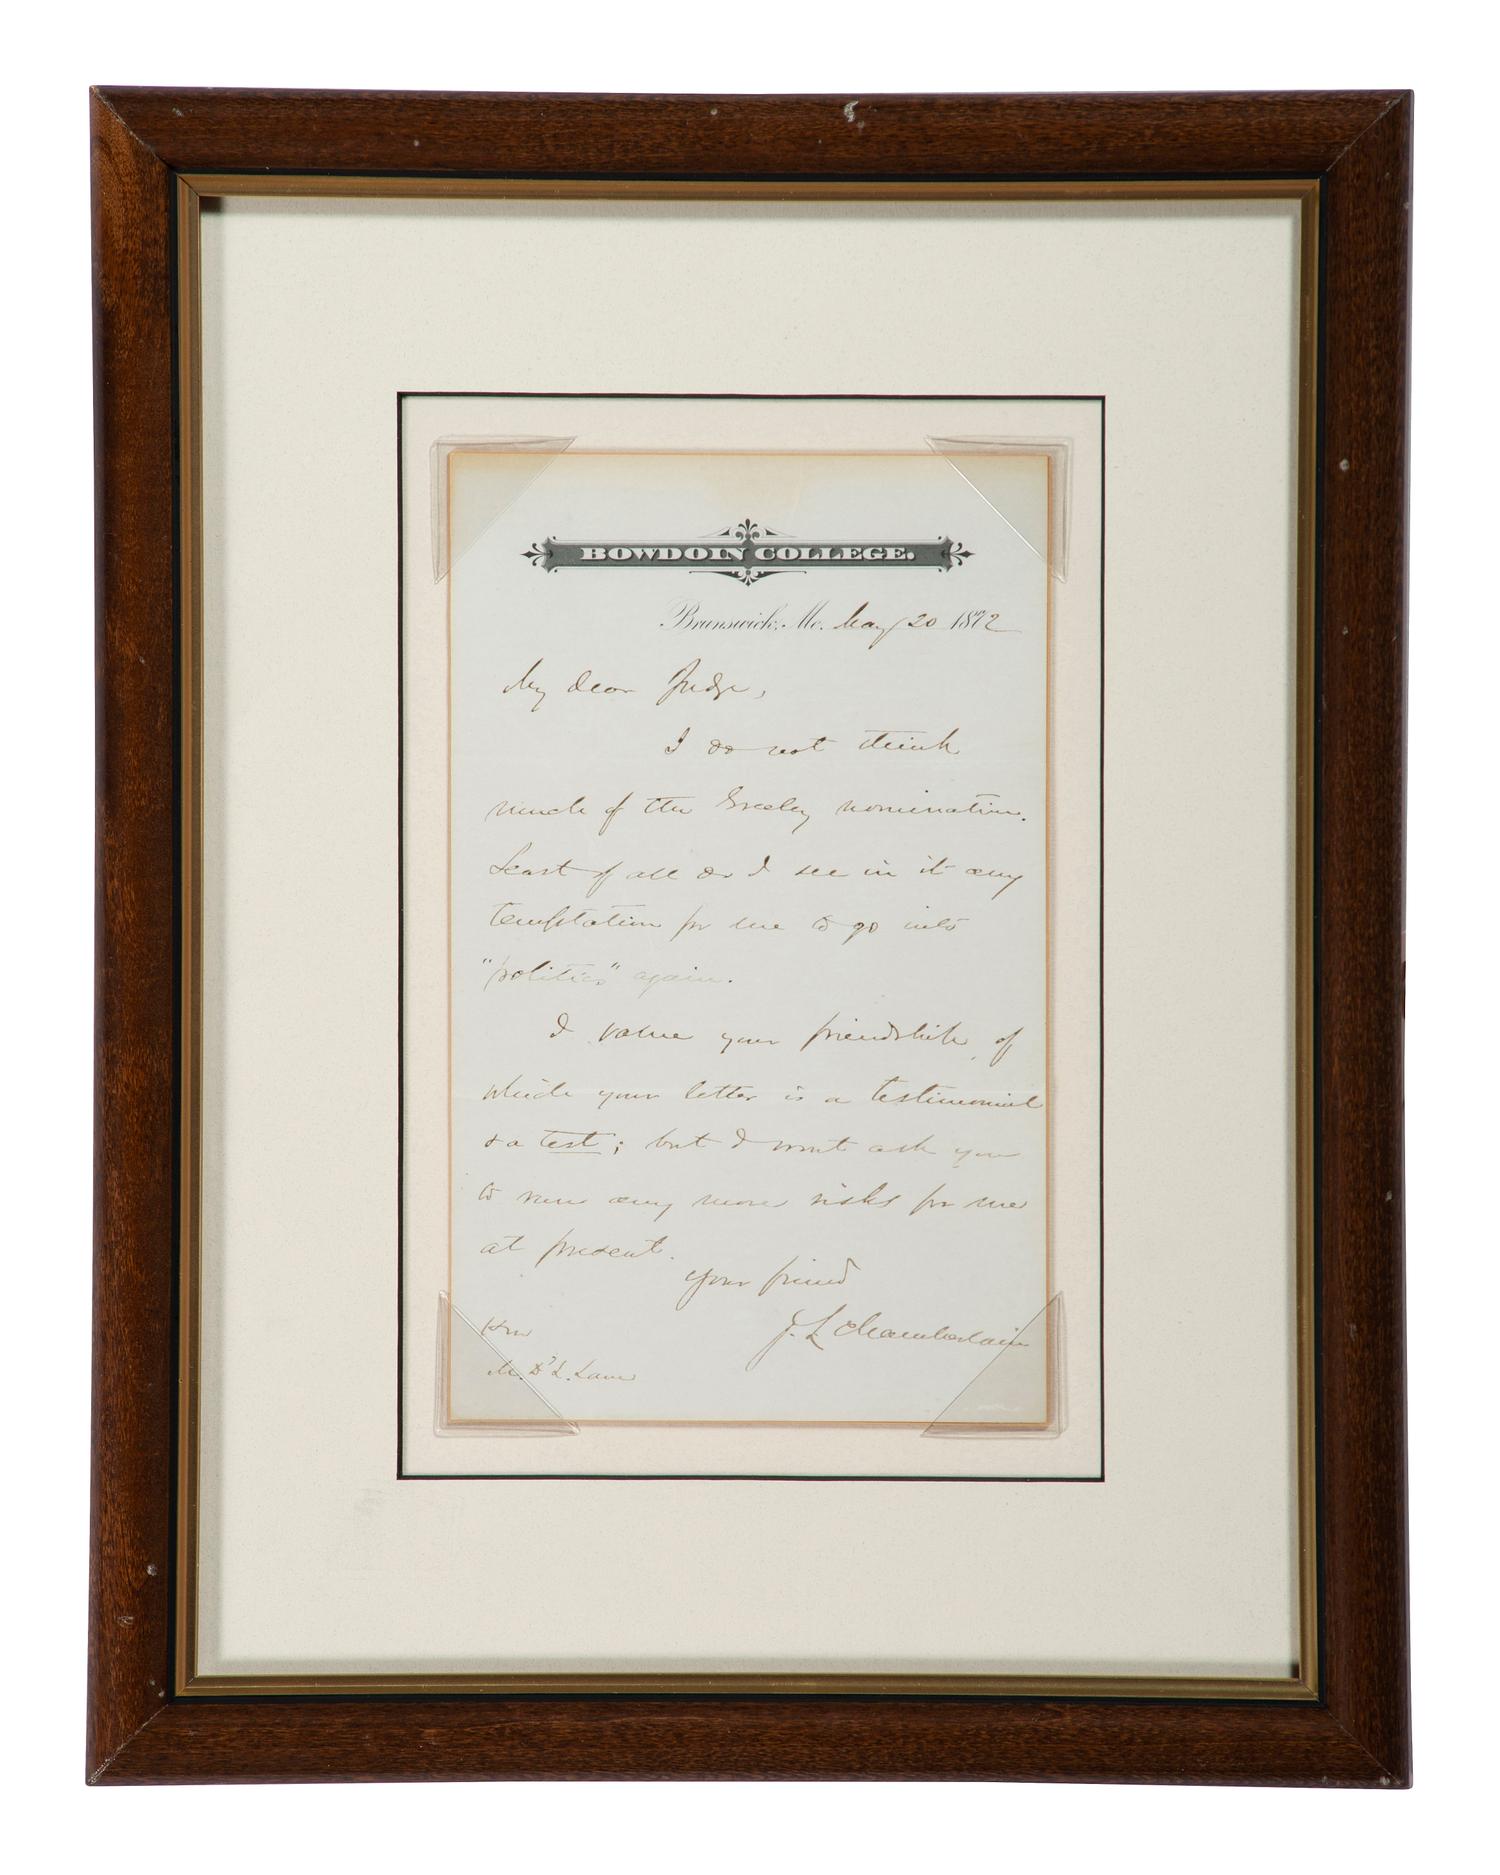 BOWDOIN COLLEGE.
Brunswick, Me. May 20 1872
My dear Judge,
I do not think
much of the Greeley nomination.
Least of all do I see in it any
temptation for me to go into
"politics" again.
I value your friendship, of
which your letter is a testimonial
& a test; but I wont ask you
to run any more risks for me
at present.
Your friend
J. L. Chamberlain
Hon
M. D'L. Lane